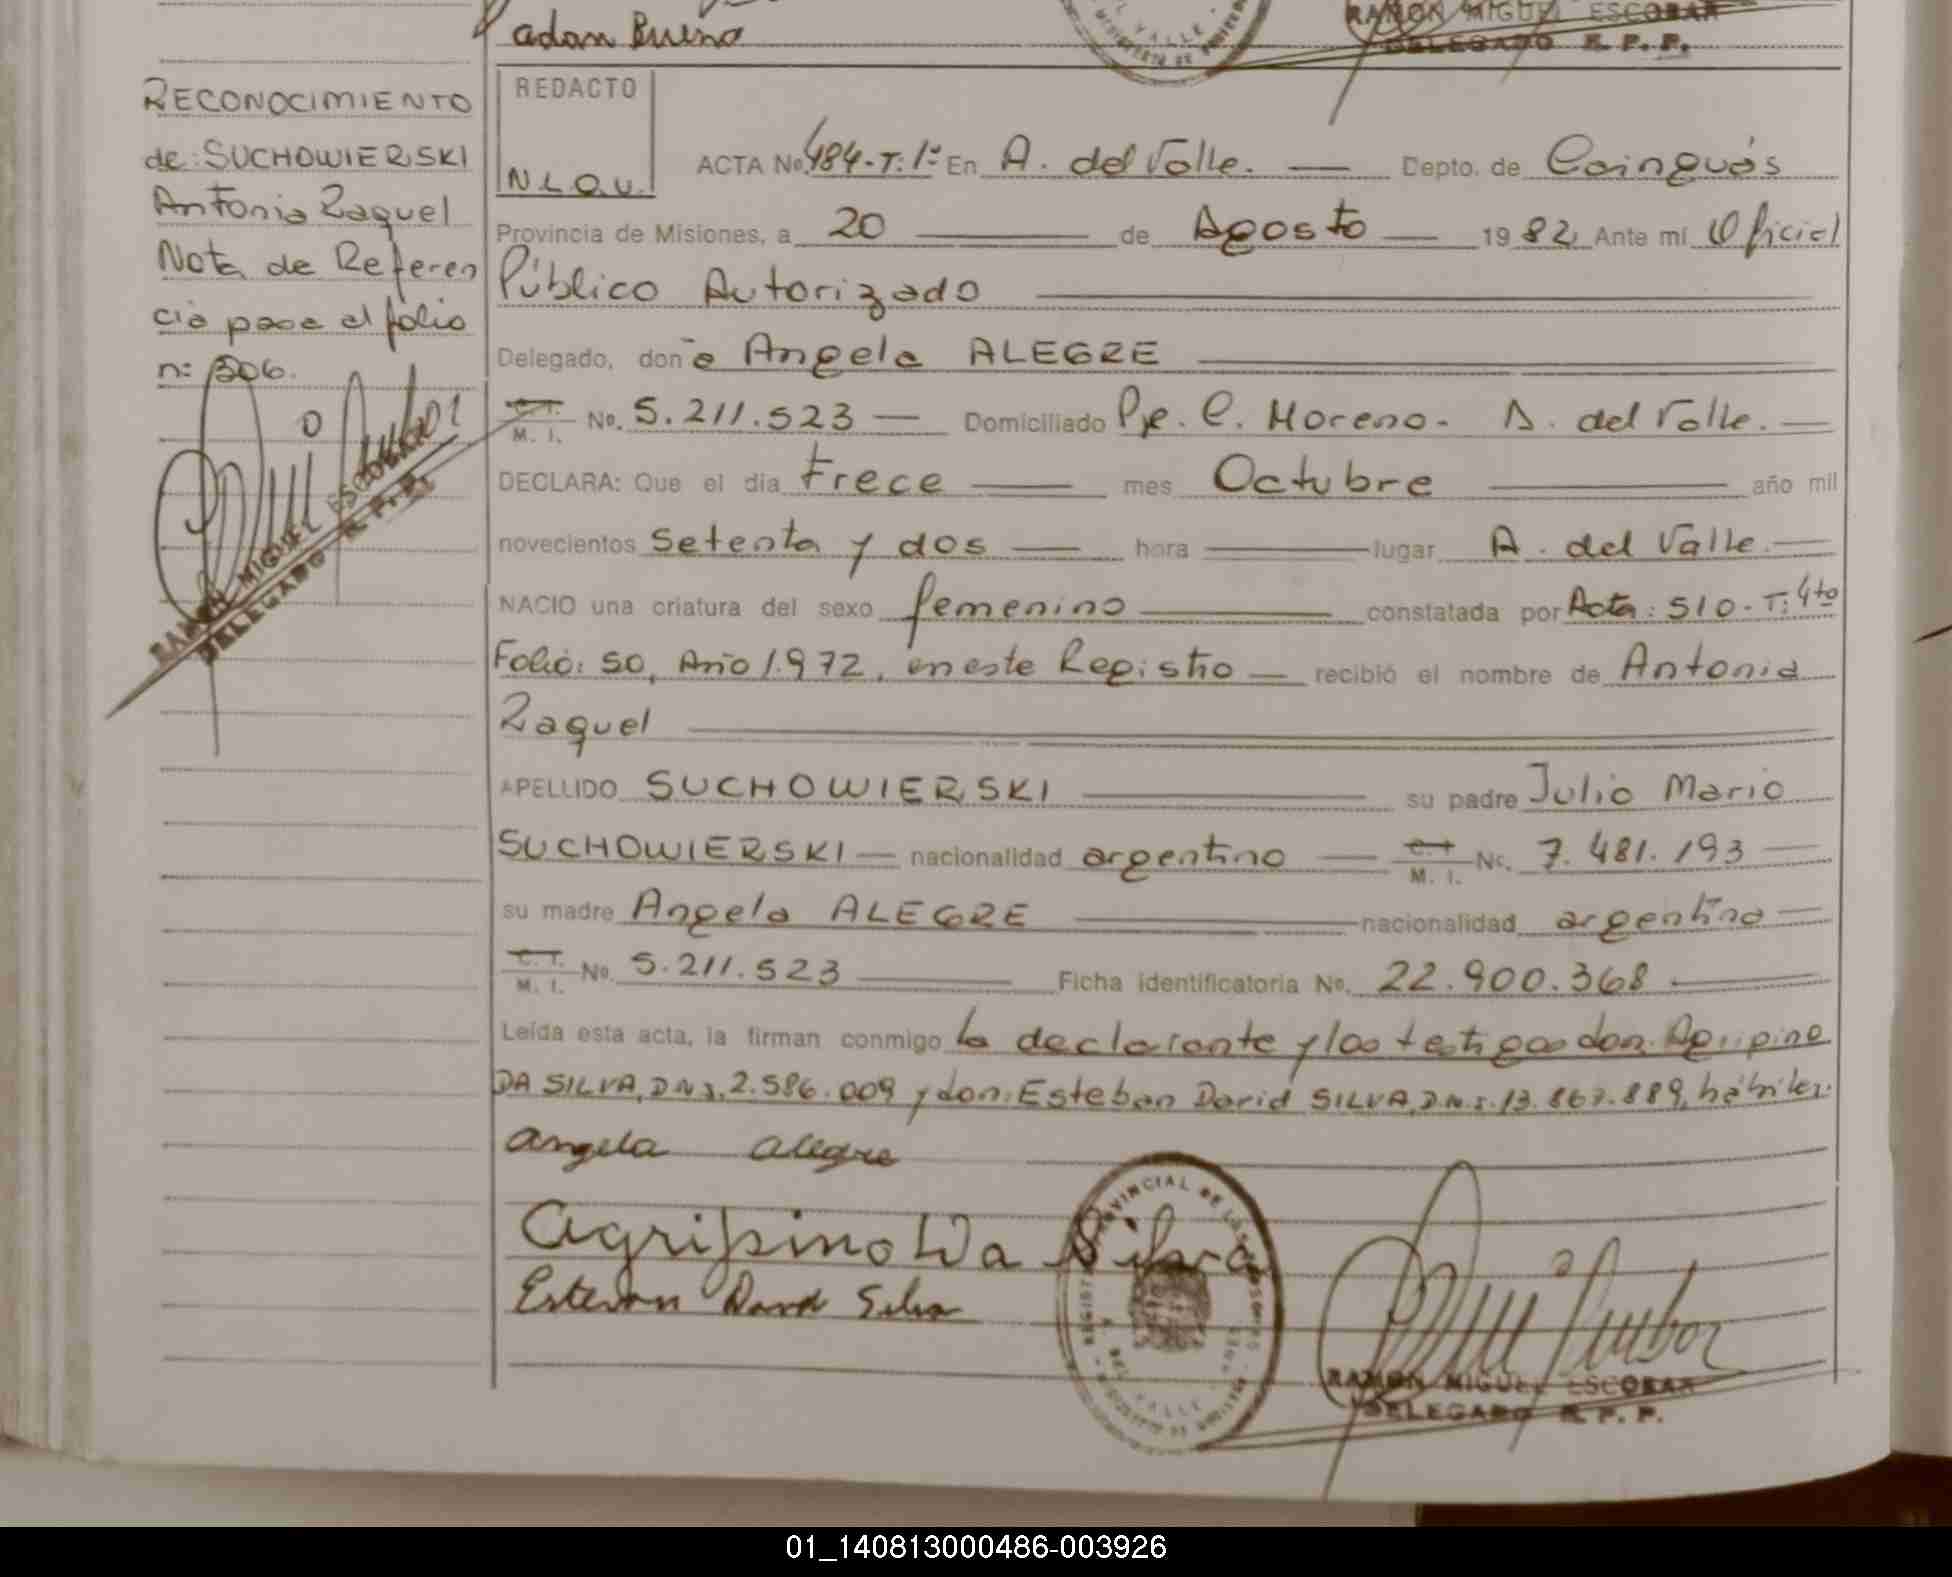 adan Bueno
DEL VALLE
RAMON MIGUEL ESCOBAR
DELEGADO R. P. P.
RECONOCIMIENTO
de: SUCHOWIERSKI
Antonia Raquel
Nota de Referen
cia pase al folio
n: 206.
RAMON MIGUEL ESCOBAR
DELEGADO R. P. P.
REDACTO
N L Q V.
ACTA No. 484-T: 1º En A. del Valle. Depto. de Cainguás
Provincia de Misiones, a 20 de Agosto 1982 Ante mí Oficial
Público Autorizado
Delegado, don a Angela ALEGRE
C. I. M. I. No. 5.211.523 Domiciliado Pje. C. Moreno. A. del Valle.
DECLARA: Que el día trece mes Octubre año mil
novecientos setenta y dos hora lugar A. del Valle.
NACIO una criatura del sexo femenino constatada por Acta: 510-T: 4to
Folio: 50, Año 1.972, en este Registro recibió el nombre de Antonia
Raquel
APELLIDO SUCHOWIERSKI su padre Julio Mario
SUCHOWIERSKI nacionalidad argentino C. I. M. I. No. 7.481.193
su madre Angela ALEGRE nacionalidad argentina
C. I. M. I. No. 5.211.523 Ficha identificatoria No. 22.900.368
Leída esta acta, la firman conmigo la declarante y los testigos don: Agripino
DA SILVA, D.N.I. 2.586.009 y don: Esteban David SILVA, D.N.I. 13.867.889, hábiles.
angela alegre
agripino Da Silva
Estevan David Silva
REGISTRO PROVINCIAL DE LAS PERSONAS
DEL VALLE
RAMON MIGUEL ESCOBAR
DELEGADO R. P. P.
01_140813000486-003926